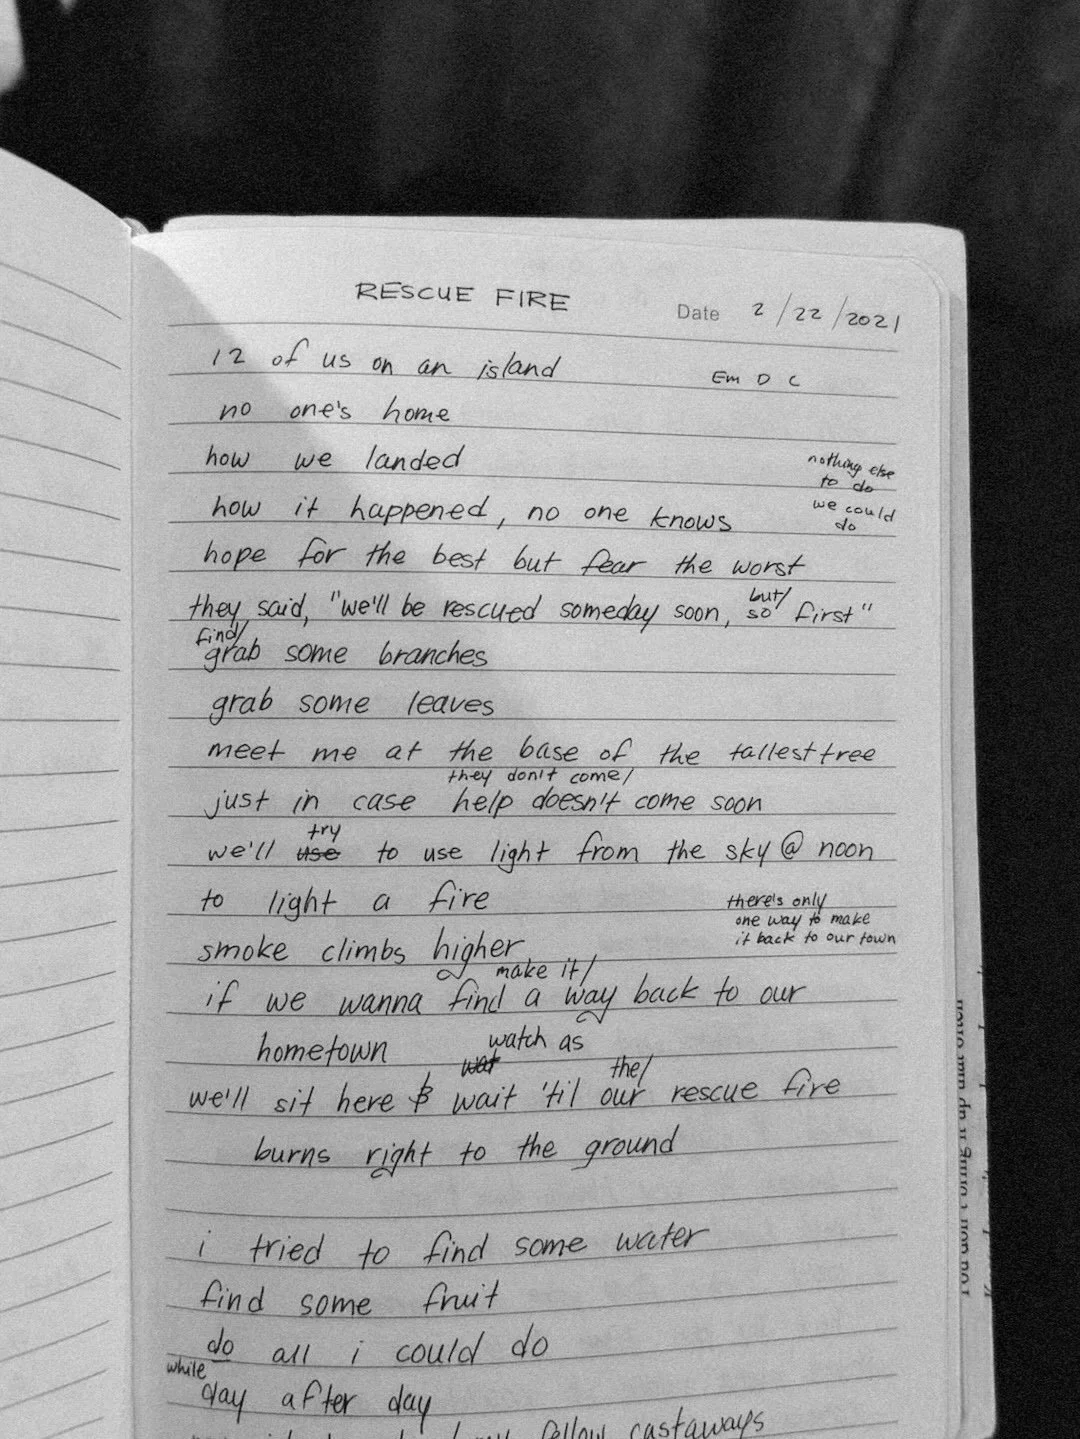 RESCUE FIRE
Date 2/22/2021
12 of us on an island
Em D C
no one's home
how we landed
nothing else
to do
we could
do
how it happened, no one knows
hope for the best but fear the worst
but/
they said, "we'll be rescued someday soon, so first"
find/
grab some branches
grab some leaves
meet me at the base of the tallest tree
they don't come/
just in case help doesn't come soon
try
we'll use to use light from the sky @ noon
to light a fire
there's only
one way to make
it back to our town
smoke climbs higher
make it/
if we wanna find a way back to our
hometown
watch as
wat the/
we'll sit here & wait 'til our rescue fire
burns right to the ground
i tried to find some water
find some fruit
do all i could do
while
day after day
fellow castaways